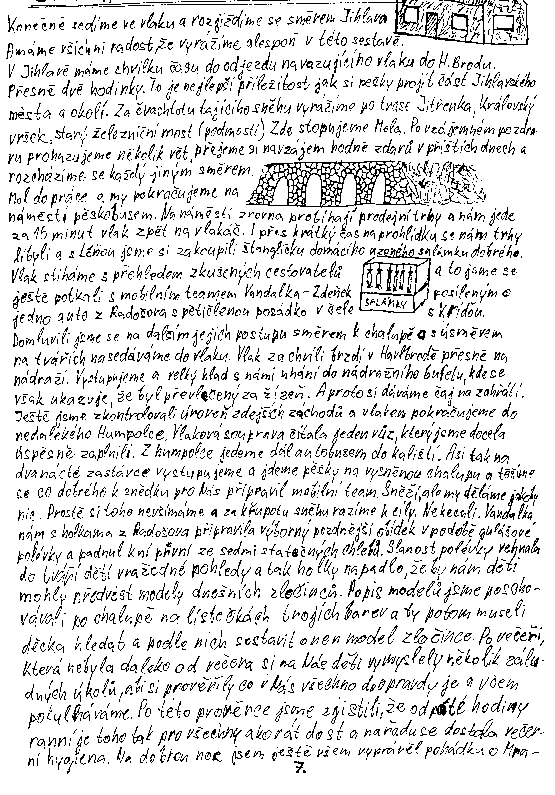 Konečně sedíme ve vlaku a rozjíždíme se směrem Jihlava
A máme všichni radost, že vyrážíme alespoň v této sestavě.
V Jihlavě máme chvilku času do odjezdu navazujícího vlaku do H. Brodu.
Přesně dvě hodinky. To je nejlepší příležitost jak si pěšky projít část Jihlavského
města a okolí. Za čvachtotu tajícího sněhu vyrážíme po trase Jitřenka, Královský
vršek, starý železniční most (podmostí) Zde stopujeme Mela. Po vzájemném pozdra-
ru prohazujeme několik vět, přejeme si navzájem hodně zdaru v příštích dnech a
rozcházíme se každý jiným směrem.
Mol do práce a my pokračujeme na
náměstí pěškobusem. Na náměstí zrovna probíhají predejní trhy a nám jede
za 15 minut vlak zpět na vlakáč. I přes krátký čas na prohlídku se nám trhy
líbyli a s Léňou jsme si zakoupili štangličku domácího uzeného salámku dobrého.
Vlak stíháme s přehledem zkušených cestovatelů a to jsme se
ještě potkali s mobilním teamem Vandalka - Zdeněk posileným o
SALÁMKY
jedno auto z Radošova s pětičlenou posádko v čele s Kridou.
Domluvili jsme se na dalším jejich postupu směrem k chalupě a s úsměvem
na tvářích nasedáváme do vlaku. Vlak za chvíli brzdí v Havlbrodě přesně na
nádraží. Vystupujeme a velký hlad s námi uhání do nádražního bufetu, kde se
však ukazuje, že byl převlečený za žízeň. A proto si dáváme čaj na zahřátí.
Ještě jsme zkontrolovali úroveň zdejších zachodů a vlakem pokračujeme do
nedalekého Humpolce. Vlaková souprava čítala jeden vůz, který jsme docela
úspěšně zaplnili. Z humpolce jedeme dál autobusem do kališti. Asi tak na
dvanácté zastávce vystupujeme a jdeme pěšky na vysněnou chalupu a těšíme
se co dobrého k snědku pro Nás připravil mobilní team. Sněží, ale my děláme jakoby
nic. Prostě si toho nevšímáme a za křupotu sněhu razíme k cíly. Nekecali. Vandalka
nám s holkama z Radošova připravila výborný pozdnější obídek v podobě gulášové
polévky a padnul k ní první ze sedmi statečných chlebů. Slanost polévky vehnala
do tváří dětí vražedné pohledy a tak holky napadlo, že by nám děti
mohly předvést modely dnešních zločinců. Popis modelů jsme poscho-
vávali po chalupě na lístečkách trojích barev a ty potom museli
děcka hledat a podle nich sestavit onen model zločince. Po večeři,
která nebyla daleko od večera si na Nás děti vymyslely několik zálu-
dných úkolů, aby si prověřily co v Nás všechno doopravdy je a v čem
pokulháváme. Po této prověrce jsme zjistili, že od páté hodiny
ranní je toho tak pro všechny akorát dost a nařaďuse dostala večer-
ní hygiena. Na dobrou noc jsem ještě všem vyprávěl pohádku o Mra-
7.